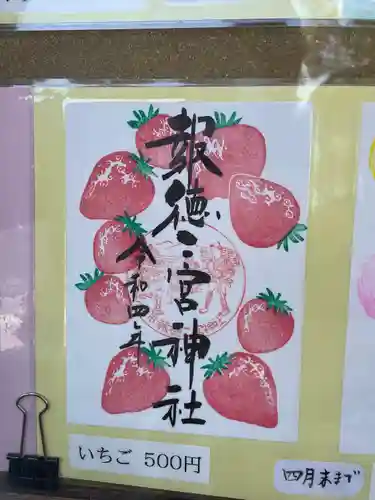 報徳二宮神社
令和四年
いちご 500円
四月末まで